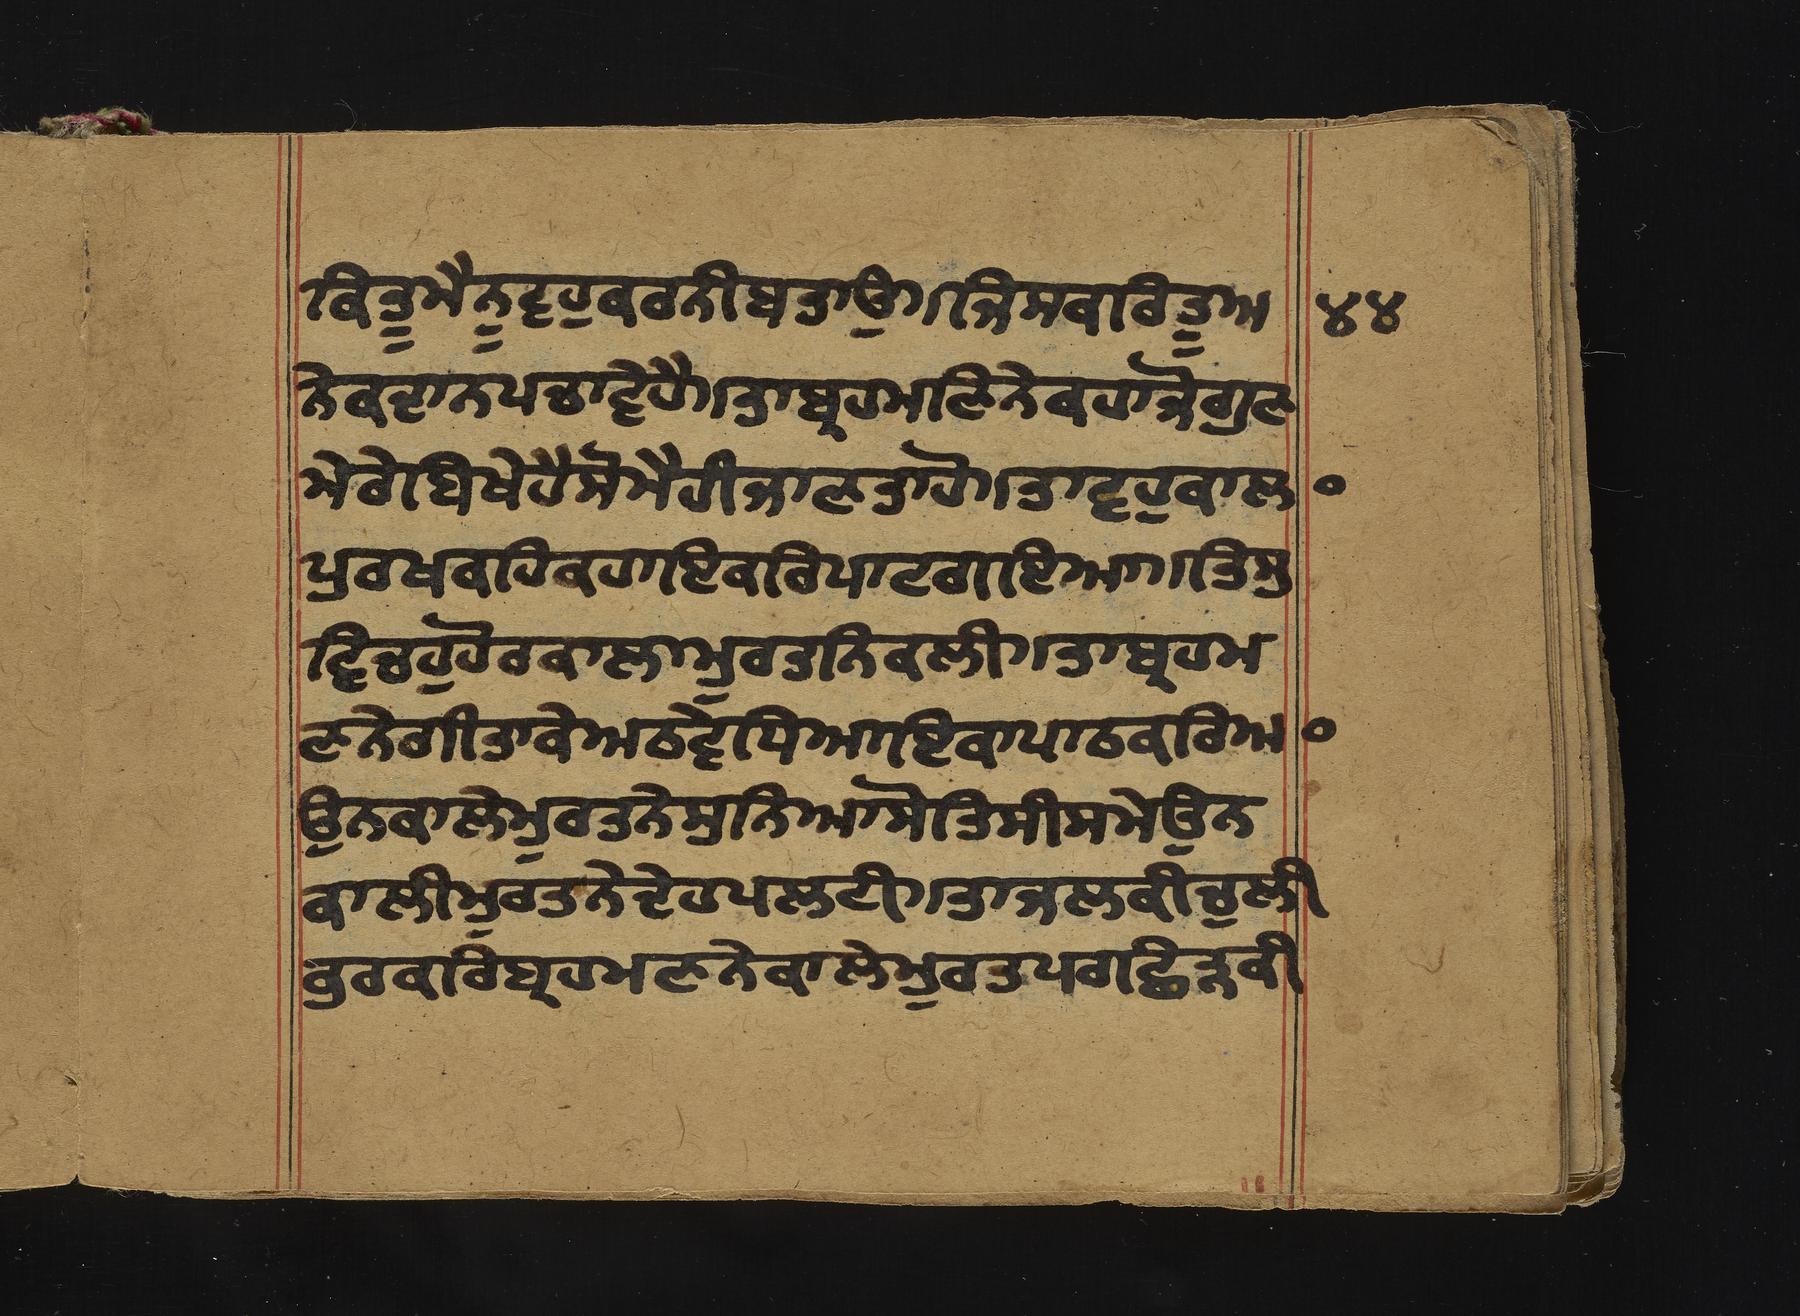 ਕਿਤੂਮੈਨੂਵਹੁਕਰਨੀਬਤਾਉ॥ਜਿਸਕਰਿਤੂਅ ੪੪
ਨੇਕਦਾਨਪਚਾਵੇਹੈ॥ਤਾਬ੍ਰਹਮਣਿਨੇਕਹਾਜੋਗੁਣ
ਮੇਰੇਬਿਖੇਹੈਸੋਮੈਹੀਜਾਣਤਾਹੋ॥ਤਾਵਹੁਕਾਲ ੦
ਪੁਰਖਕਹਿਕਹਾਇਕਰਿਪਾਟਗਇਆ॥ਤਿਸੁ
ਵਿਚਹੁਹੋਰਕਾਲਾਮੂਰਤਨਿਕਲੀ॥ਤਾਬ੍ਰਹਮ
ਣਨੇਗੀਤਾਕੇਅਠਵੇਧਿਆਇਕਾਪਾਠਕਰਿਅ ੦
ਉਨਕਾਲੇਮੁਰਤਨੇਸੁਨਿਆਸੋਤਿਸੀਸਮੇਉਨ
ਕਾਲੀਮੁਰਤਨੇਦੇਹਪਲਟੀ॥ਤਾਜਲਕੀਚੁਲੀ
ਕੁਰਕਰਿਬ੍ਰਹਮਣਨੇਕਾਲੇਮੁਰਤਪਰਛਿੜਕੀ